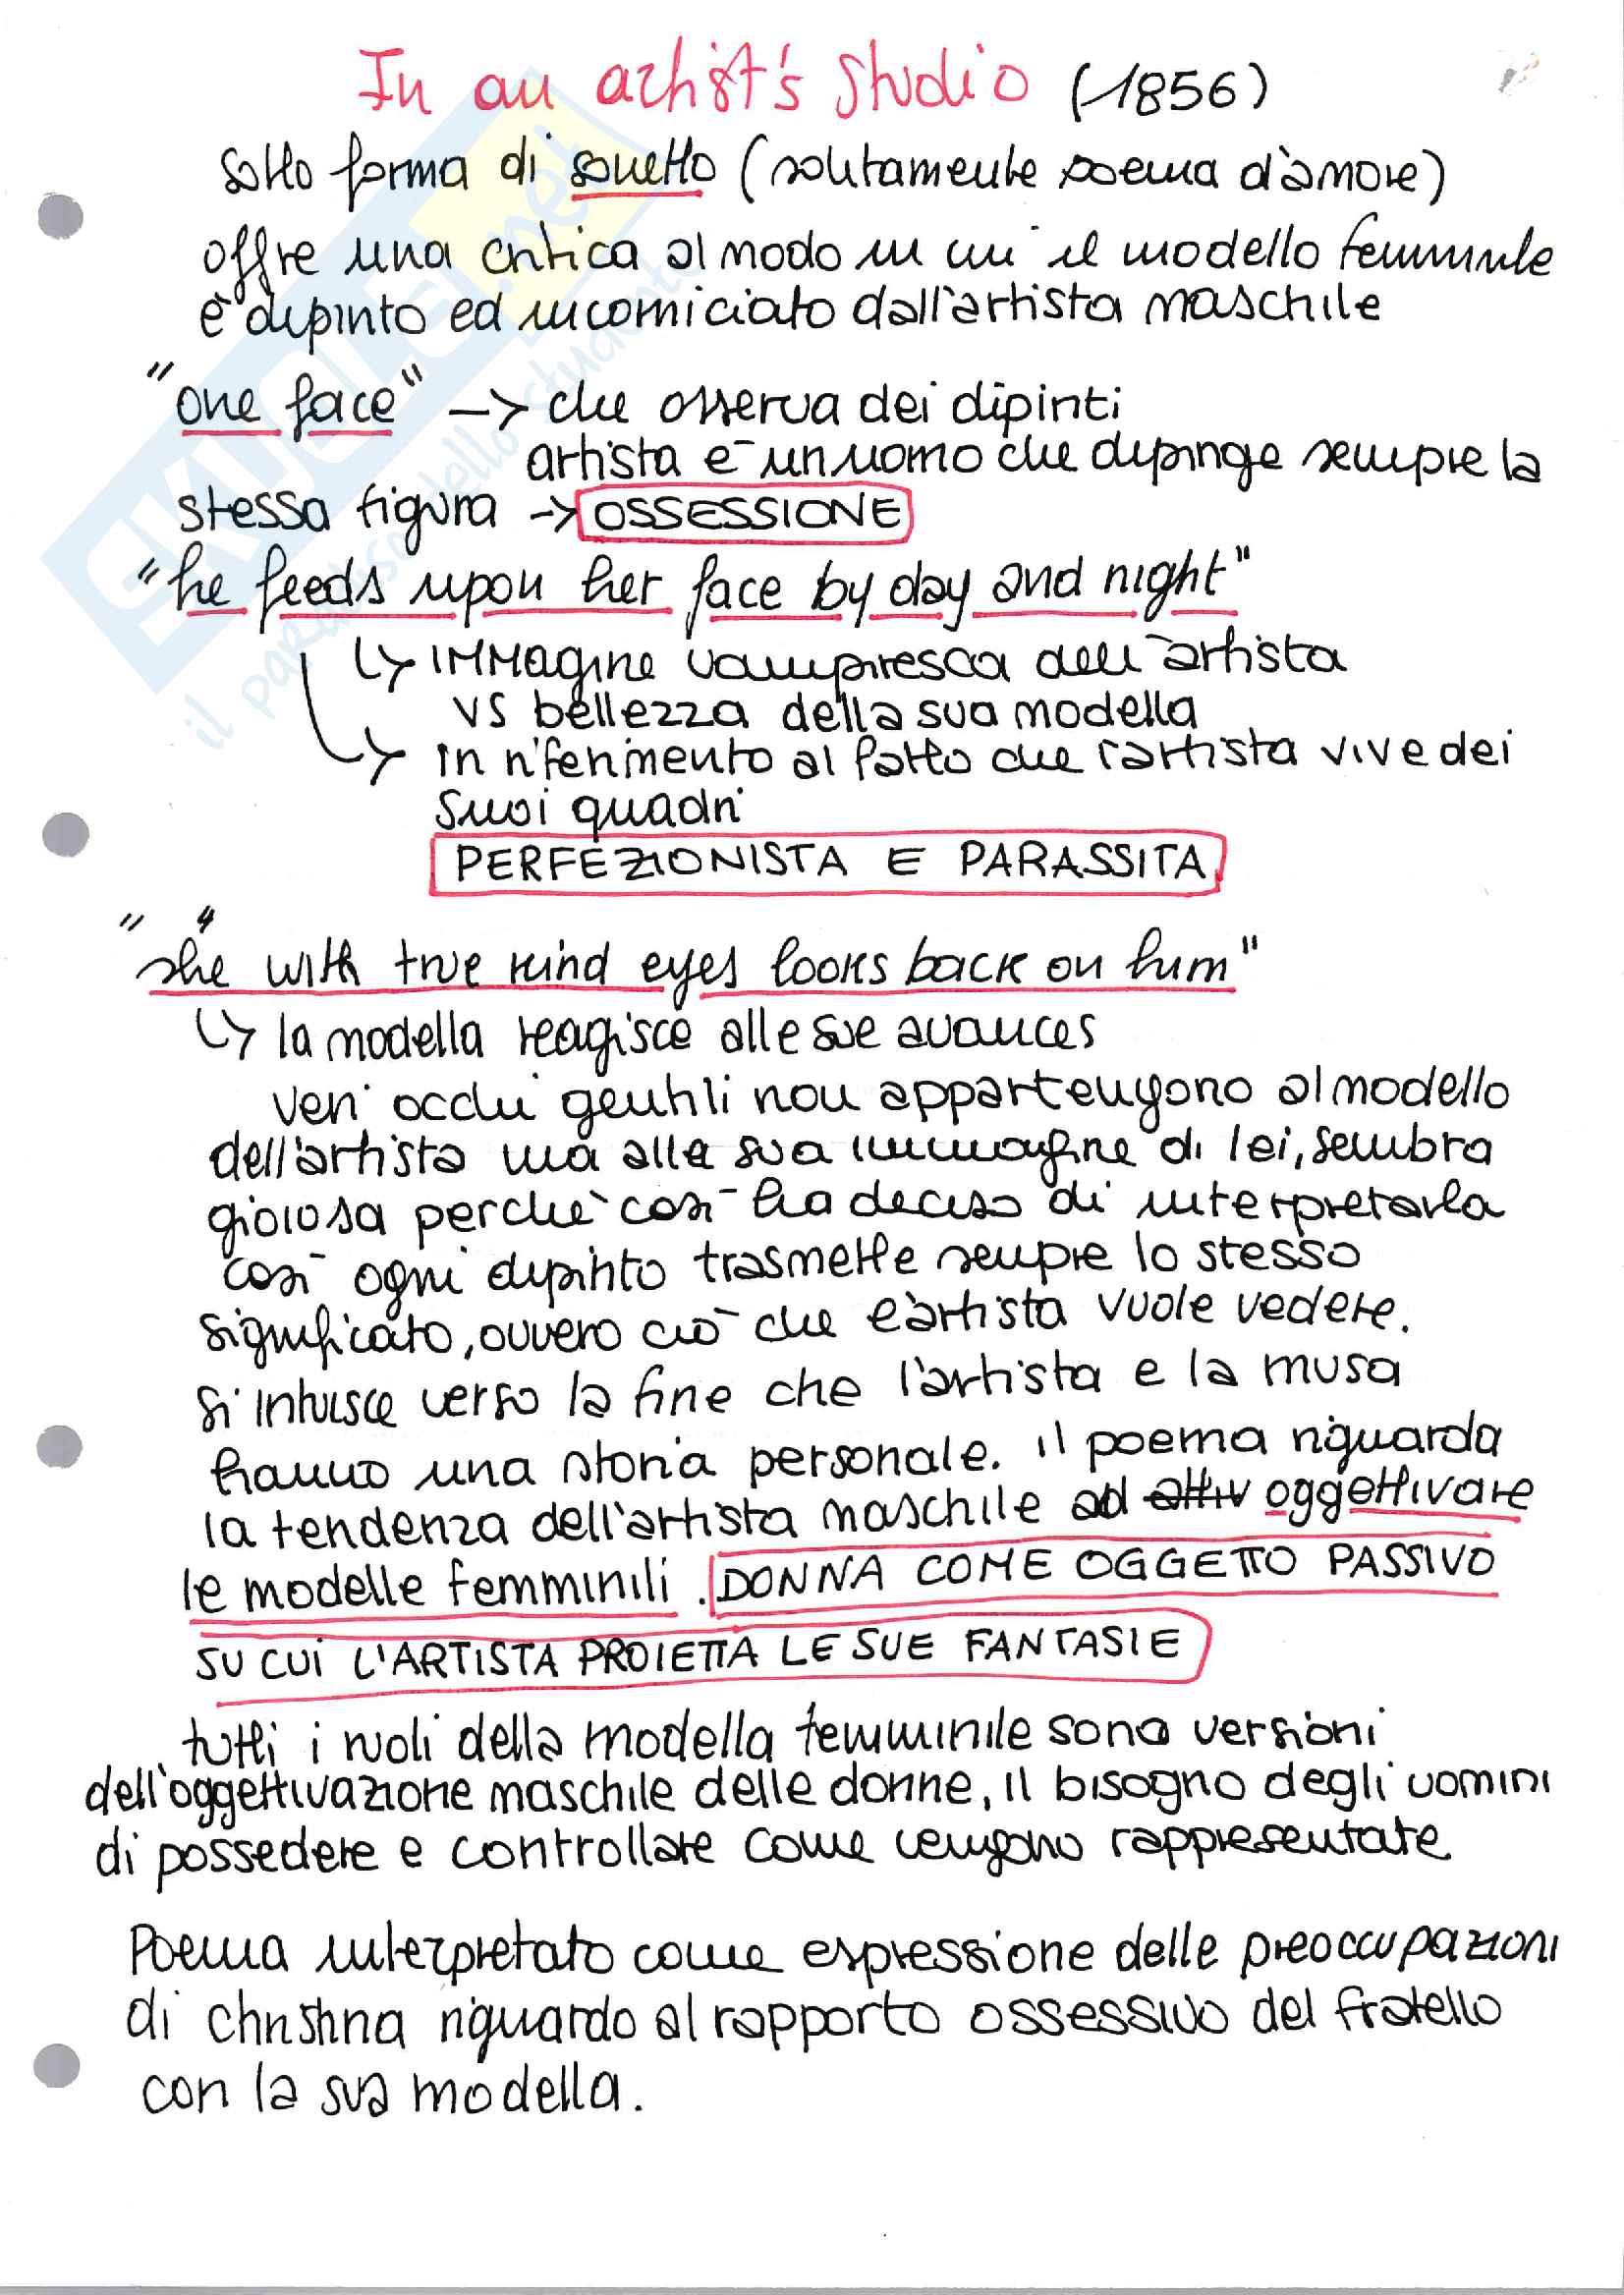 In an artist's studio (1856)
sotto forma di sonetto (solitamente poema d'amore)
offre una critica al modo in cui il modello femminile
è dipinto ed incorniciato dall'artista maschile
"one face" -> che osserva dei dipinti
artista è un uomo che dipinge sempre la
stessa figura -> OSSESSIONE
"he feeds upon her face by day and night"
↳ immagine vampiresca dell'artista
vs bellezza della sua modella
↳ in riferimento al fatto che l'artista vive dei
suoi quadri
PERFEZIONISTA E PARASSITA
"she with true kind eyes looks back on him"
↳ la modella reagisce alle sue avances
veri occhi gentili non appartengono al modello
dell'artista ma alla sua immagine di lei, sembra
gioiosa perchè così ha deciso di interpretarla
così ogni dipinto trasmette sempre lo stesso
significato, ovvero ciò che l'artista vuole vedere.
si intuisce verso la fine che l'artista e la musa
hanno una storia personale. il poema riguarda
la tendenza dell'artista maschile ad oggettivare
le modelle femminili. DONNA COME OGGETTO PASSIVO
SU CUI L'ARTISTA PROIETTA LE SUE FANTASIE
tutti i ruoli della modella femminile sono versioni
dell'oggettivazione maschile delle donne, il bisogno degli uomini
di possedere e controllare come vengono rappresentate
Poema interpretato come espressione delle preoccupazioni
di christina riguardo al rapporto ossessivo del fratello
con la sua modella.
SKUOLA.net
il paradiso dello studente